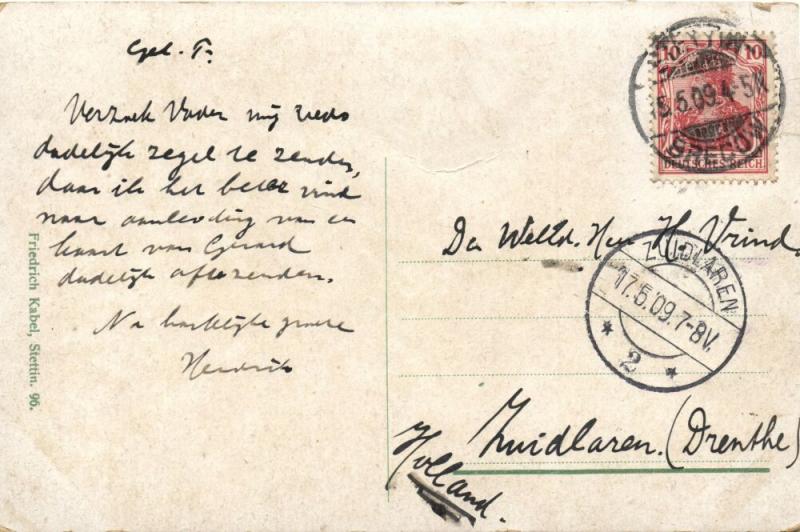 Gel. T.
Verzoek Vader mij reeds
dadelijk zegel te zenden,
daar ik het beter vind
naar aanleiding van een
kaart van Gerard
dadelijk af te zenden.
Na hartelijke groete
Hendrik
Friedrich Kabel, Stettin. 96.
10 10
DEUTSCHES REICH
5.09.4-5N
Den Weled. Heer H. Vrind.
ZUIDLAREN
17.5.09.7-8V.
* 2 *
Zuidlaren. (Drenthe)
Holland.